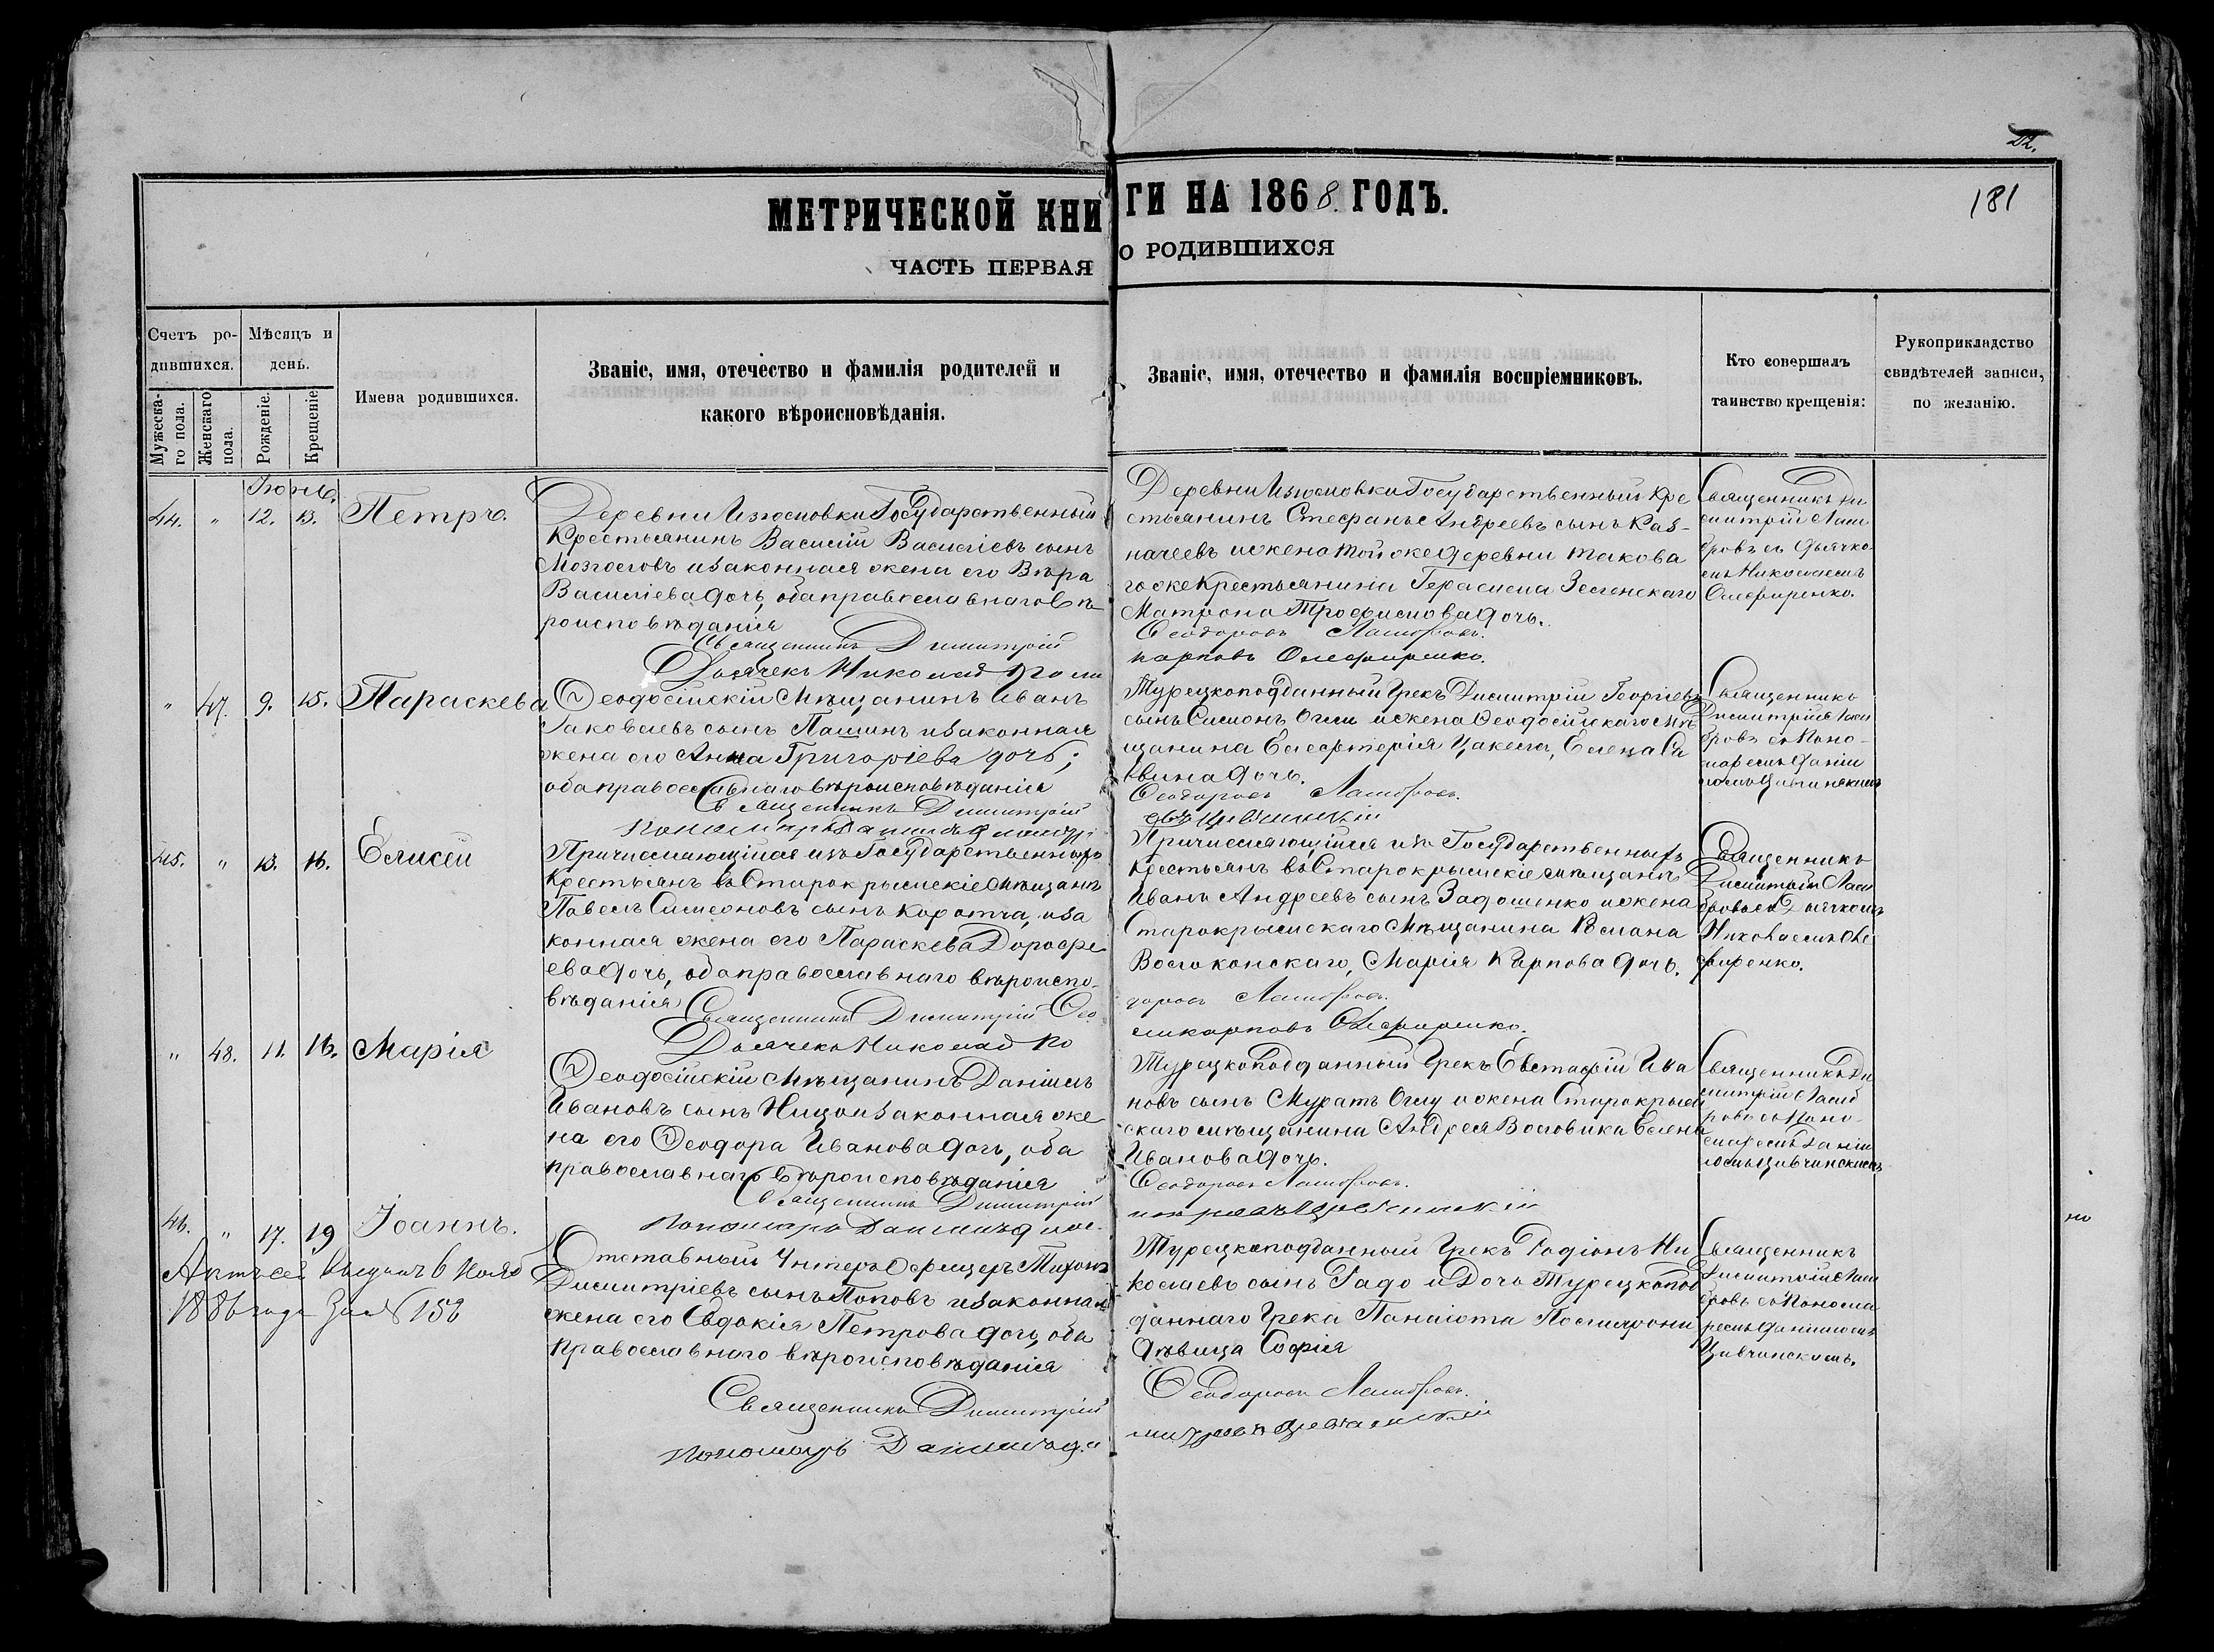 22.
181
МЕТРИЧЕСКОЙ КНИГИ НА 1868. ГОДЪ.
ЧАСТЬ ПЕРВАЯ О РОДИВШИХСЯ
Счетъ ро-
дившихся.
Мѣсяцъ и
день.
Мужеска-
го пола.
Женскаго
пола.
Рожденіе.
Крещеніе
Имена родившихся.
Званіе, имя, отечество и фамилія родителей и
какого вѣроисповѣданія.
Званіе, имя, отечество и фамилія воспріемниковъ.
Кто совершалъ
таинство крещенія:
Рукоприкладство
свидѣтелей записи,
по желанію.
Іюнь.
44. " 12. 13. Петръ.
Деревни Изюмовки Государственный
Крестьянинъ Василій Василіевъ сынъ
и законная жена его Вѣра
Василіева дочь, оба православнаго вѣ
роисповѣданія
Священникъ Димитрій
Дьячекъ Николай
Деревни Изюмовки Государственный Кре
стьянинъ Стефанъ Андреевъ сынъ Каз-
начеевъ и жена той же деревни такова
го же Крестьянина Герасима Зеленскаго
Матрона Трофимова дочь.
Ѳеодоровъ
карповъ Олефиренко.
Священникъ Ди
митрій
съ дьячко
мъ Николаемъ
Олефиренко.
" 47. 9. 15. Параскева
Ѳеодосійскій Мѣщанинъ Иванъ
Іаковлевъ сынъ Пашинъ и законная
жена его Анна Григоріева дочь;
оба православнаго вѣроисповѣданія
Священникъ Димитрій
Пономарь
Турецкоподданный Грекъ Димитрій Георгіевъ
сынъ Симонъ Оглы и жена Ѳеодосійскаго мѣ
щанина Елефтерія Цакела, Елена Са
ввина дочь.
Ѳеодоровъ
Священникъ
Димитрій
съ Поно-
маремъ Дани
ломъ Цивчинскимъ
45. " 13. 16. Елисей
Причисляющійся изъ Государственныхъ
Крестьянъ въ Старокрымскіе мѣщане
Павелъ Симеоновъ сынъ Коротча, и за
конная жена его Параскева Дорофе
ева дочь, оба православнаго вѣроиспо-
вѣданія
Священникъ Димитрій Ѳео
Дьячекъ Николай По
Причисляющійся изъ Государственныхъ
Крестьянъ въ Старокрымскіе мѣщане
Иванъ Андреевъ сынъ Задошенко и жена
Старокрымскаго Мѣщанина Романа
Волоконскаго, Марія Карпова дочь.
доровъ
ликарповъ Олефиренко.
Священникъ
Димитрій
съ Дьячкомъ
Николаемъ Оле
фиренко.
" 48. 11. 16. Марія
Ѳеодосійскій Мѣщанинъ Даніилъ
Ивановъ сынъ Ницо и законная же
на его Ѳеодора Иванова дочь, оба
православнаго вѣроисповѣданія
Священникъ Димитрій
Пономарь Даніилъ
Турецкоподданный Грекъ Евстафій Ива
новъ сынъ Муратъ Оглу и жена Старокрым
скаго мѣщанина Андрея Воловика Елена
Иванова дочь.
Ѳеодоровъ
Священникъ Ди
митрій
съ Поно-
маремъ Дани
ломъ Цивчинскимъ
46. " 17. 19 Іоаннъ.
Актъ сей выданъ 6 Нояб
1886 года за № 152
Отставный Унтеръ Офицеръ Тихонъ
Димитріевъ сынъ Поповъ и законная
жена его Евдокія Петрова дочь, оба
православнаго вѣроисповѣданія
Священникъ Димитрій
Пономарь Даніилъ
Турецкоподданный Грекъ Родіонъ Ни
колаевъ сынъ Радо и Дочь Турецкопод
даннаго Грека Панаіота
дѣвица Софія
Ѳеодоровъ
Священникъ
Димитрій
съ Понома
ремъ Даніиломъ
Цивчинскимъ.